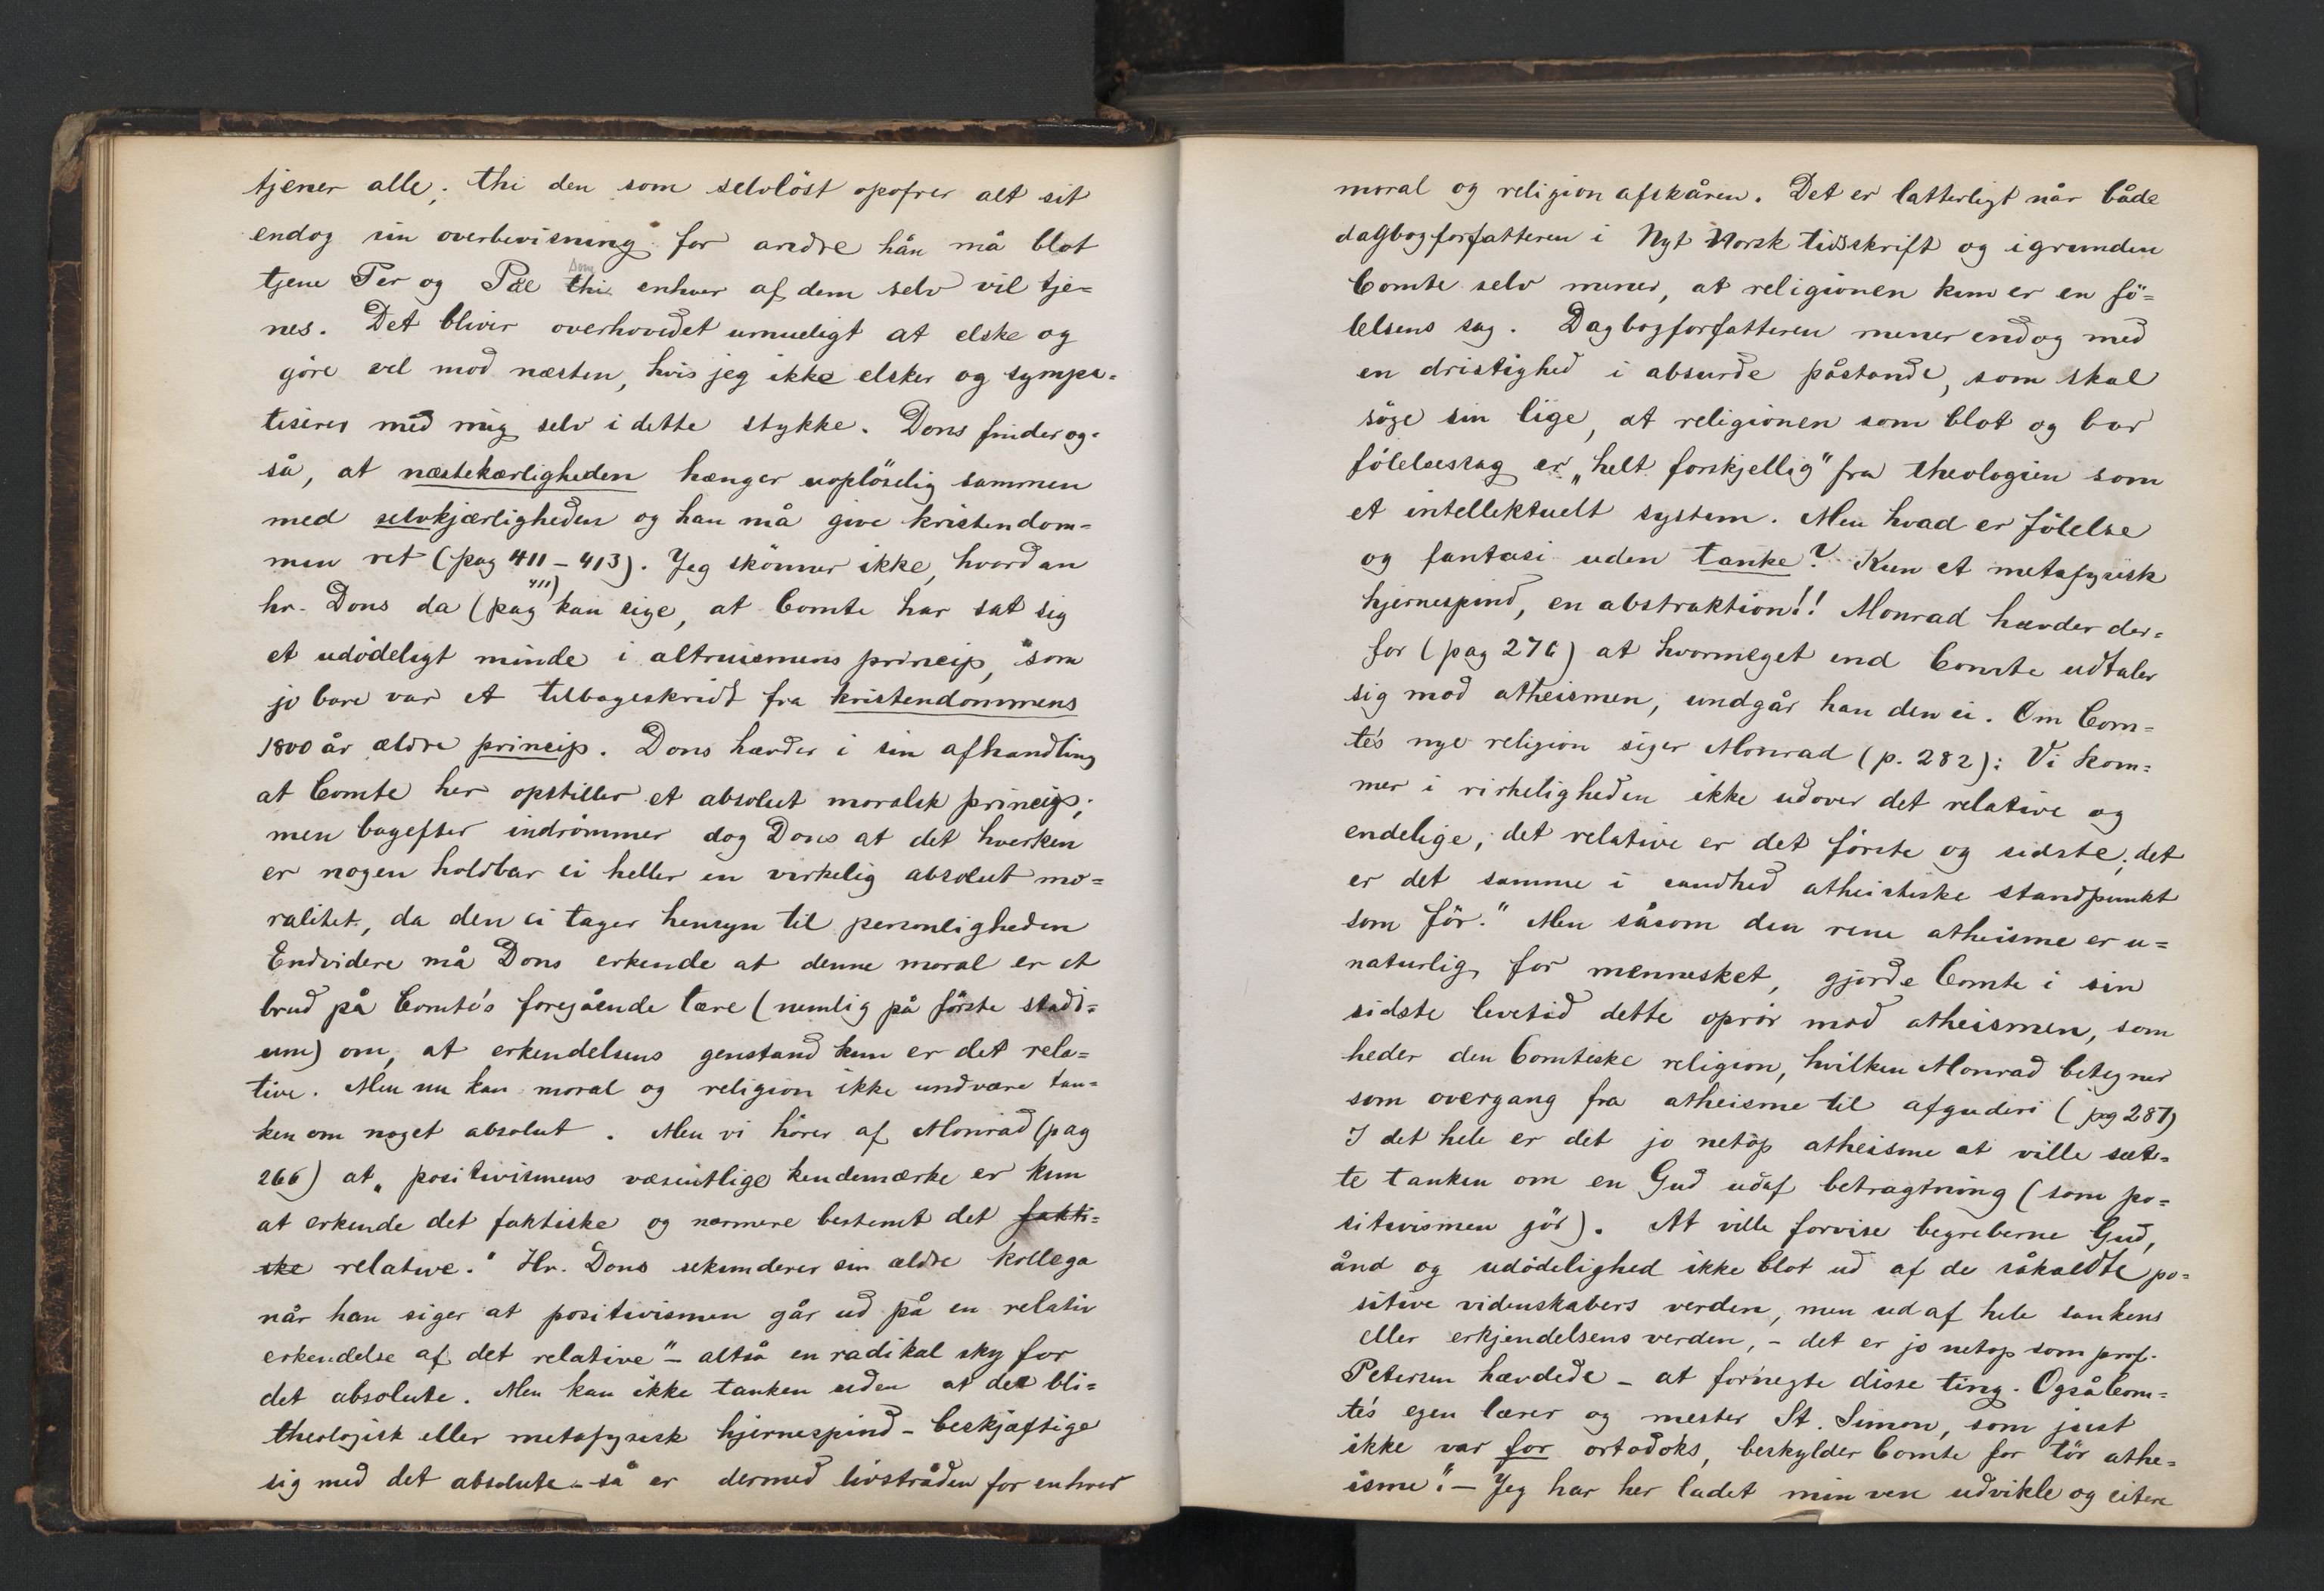 tjener alle; thi den som selvlöst opofrer alt sit
endog sin overbevisning for andre han må blot
tjene Per og Pål som thi enhver af dem selv vil tje=
nes. Det bliver overhovedet umueligt at elske og
göre vel mod næsten, hvis jeg ikke elsker og sympa=
tiserer med mig selv i dette stykke. Dons finder og=
så, at næstekærligheden hænger uoplöselig sammen
med selvkjærligheden og han må give kristendom=
men ret (pag 411-413). Jeg skönner ikke, hvordan
hr. Dons da (pag 411) kan sige, at Comte har sat sig
et udödeligt minde i altruismens princip, som
jo bare var et tilbageskridt fra kristendommens
1800 år ældre princip. Dons hævder i sin afhandling
at Comte her opstiller et absolut moralsk princip;
men bagefter indrömmer dog Dons at det hverken
er nogen holdbar ei heller en virkelig absolut mo=
ralitet, da den ei tager hensyn til personligheden
Endvidere må Dons erkende at denne moral er et
brud på Comte's foregående lære (nemlig på förste stadi=
um) om, at erkendelsens genstand kun er det rela=
tive. Men nu kan moral og religion ikke undvære tan=
ken om noget absolut. Men vi hörer af Monrad (pag
266) at „positivismens væsentlige kendemærke er kun
at erkende det faktiske og nærmere bestemt det fakti=
ske relative." Hr. Dons sekunderer sin ældre kollega
når han siger at positivismen går ud på en relativ
erkendelse af det relative" - altså en radikal sky for
det absolute. Men kan ikke tanken uden at det bli=
theologisk eller metafysisk hjernespind - beskjæftige
sig med det absolute - så er dermed livstråden for enhver
moral og religion afskåren. Det er latterligt når både
dagbogforfatteren i Nyt Norsk tidsskrift og igrunden
Comte selv mener, at religionen kun er en fö=
lelsens sag. Dagbogforfatteren mener endog med
en dristighed i absurde påstande, som skal
söge sin lige, at religionen som blot og bar
fölelsessag er „helt forskjellig" fra theologien som
et intellektuelt system. Men hvad er fölelse
og fantasi uden tanke? Kun et metafysisk
hjernespind, en abstraktion!! Monrad hævder der=
for (pag 276) at hvormeget end Comte udtaler
sig mod atheismen, undgår han den ei. Om Com=
te's nye religion siger Monrad (p. 282): Vi kom=
mer i virkeligheden ikke udover det relative og
endelige; det relative er det förste og sidste; det
er det samme i sandhed atheistiske standpunkt
som för." Men såsom den rene atheisme er u=
naturlig for mennesket, gjorde Comte i sin
sidste levetid dette oprör mod atheismen, som
heder den Comtiske religion, hvilken Monrad betegner
som overgang fra atheisme til afguderi (pag 287)
I det hele er det jo netop atheisme at ville sæt=
te tanken om en Gud udaf betragtning (som po=
sitivismen gör). At ville forvise begreberne Gud,
ånd og udödelighed ikke blot ud af de såkaldte po=
sitive videnskabers verden, men ud af hele tankens
eller erkjendelsens verden, - det er jo netop som prof.
Petersen hævdede - at fornegte disse ting. Også Com=
te's egen lærer og mester St. Simon, som just
ikke var for ortodoks, beskylder Comte for „tör athe=
isme". - Jeg har her ladet min ven udvikle og citere